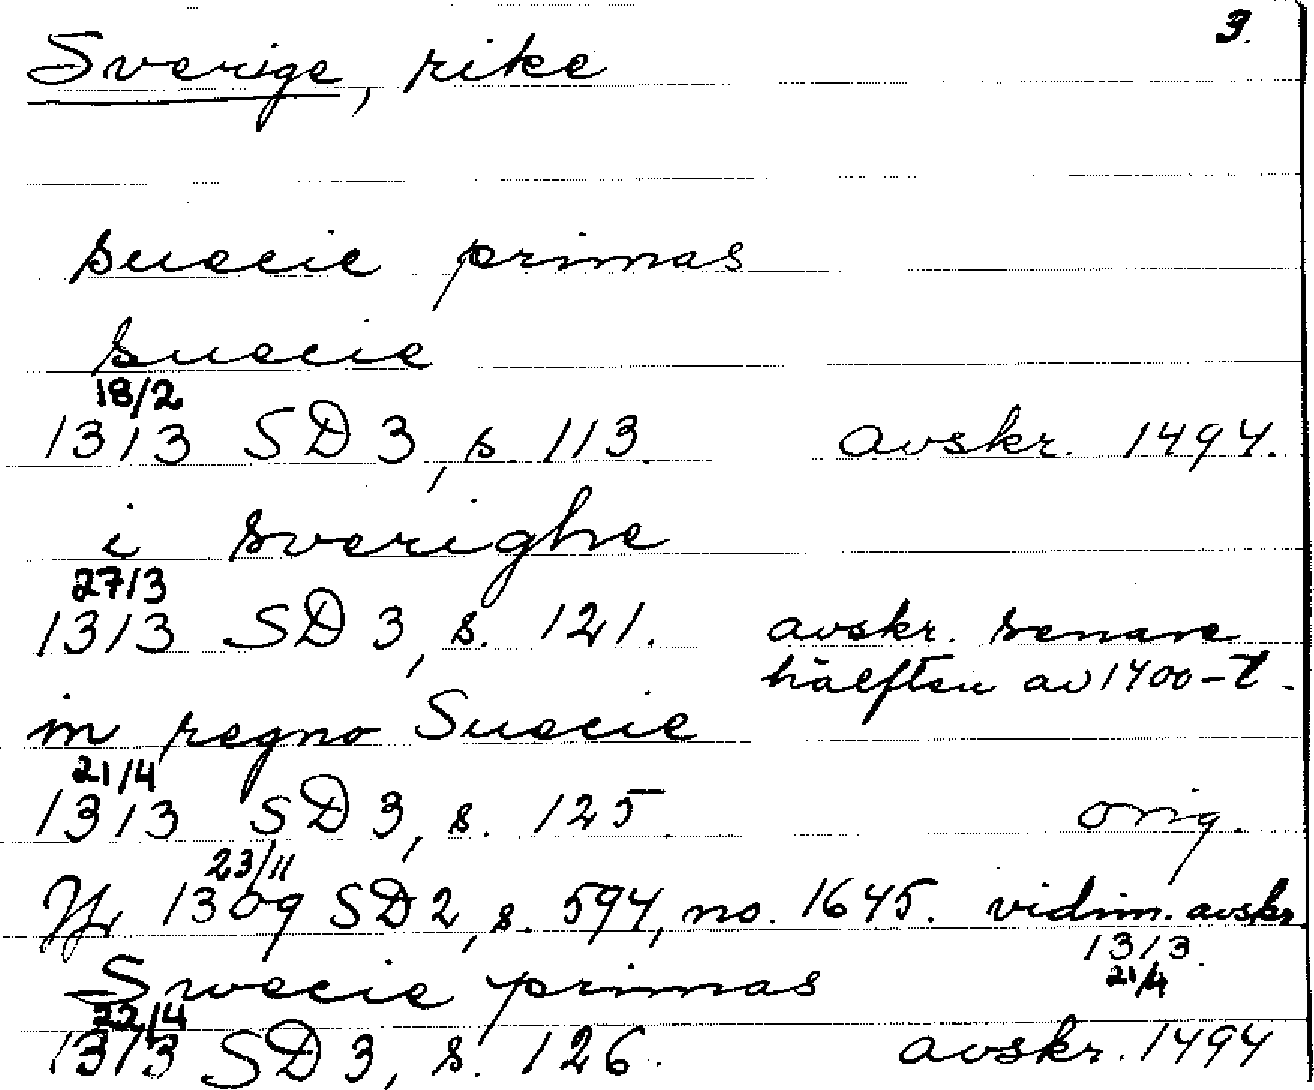 3.
Sverige, rike
suecie primas
suecie
18/2
1313 SD 3, s. 113. avskr. 1494.
i sverighe
27/3
1313 SD 3, s. 121. avskr. senare
hälften av 1400-t.
in regno Suecie
21/4
1313 SD 3, s. 125. orig.
23/11
Jfr 1309 SD 2, s. 594, no. 1645. vidim. avskr
1313.
21/4
Swecie primas
22/4
1313 SD 3, s. 126. avskr. 1494